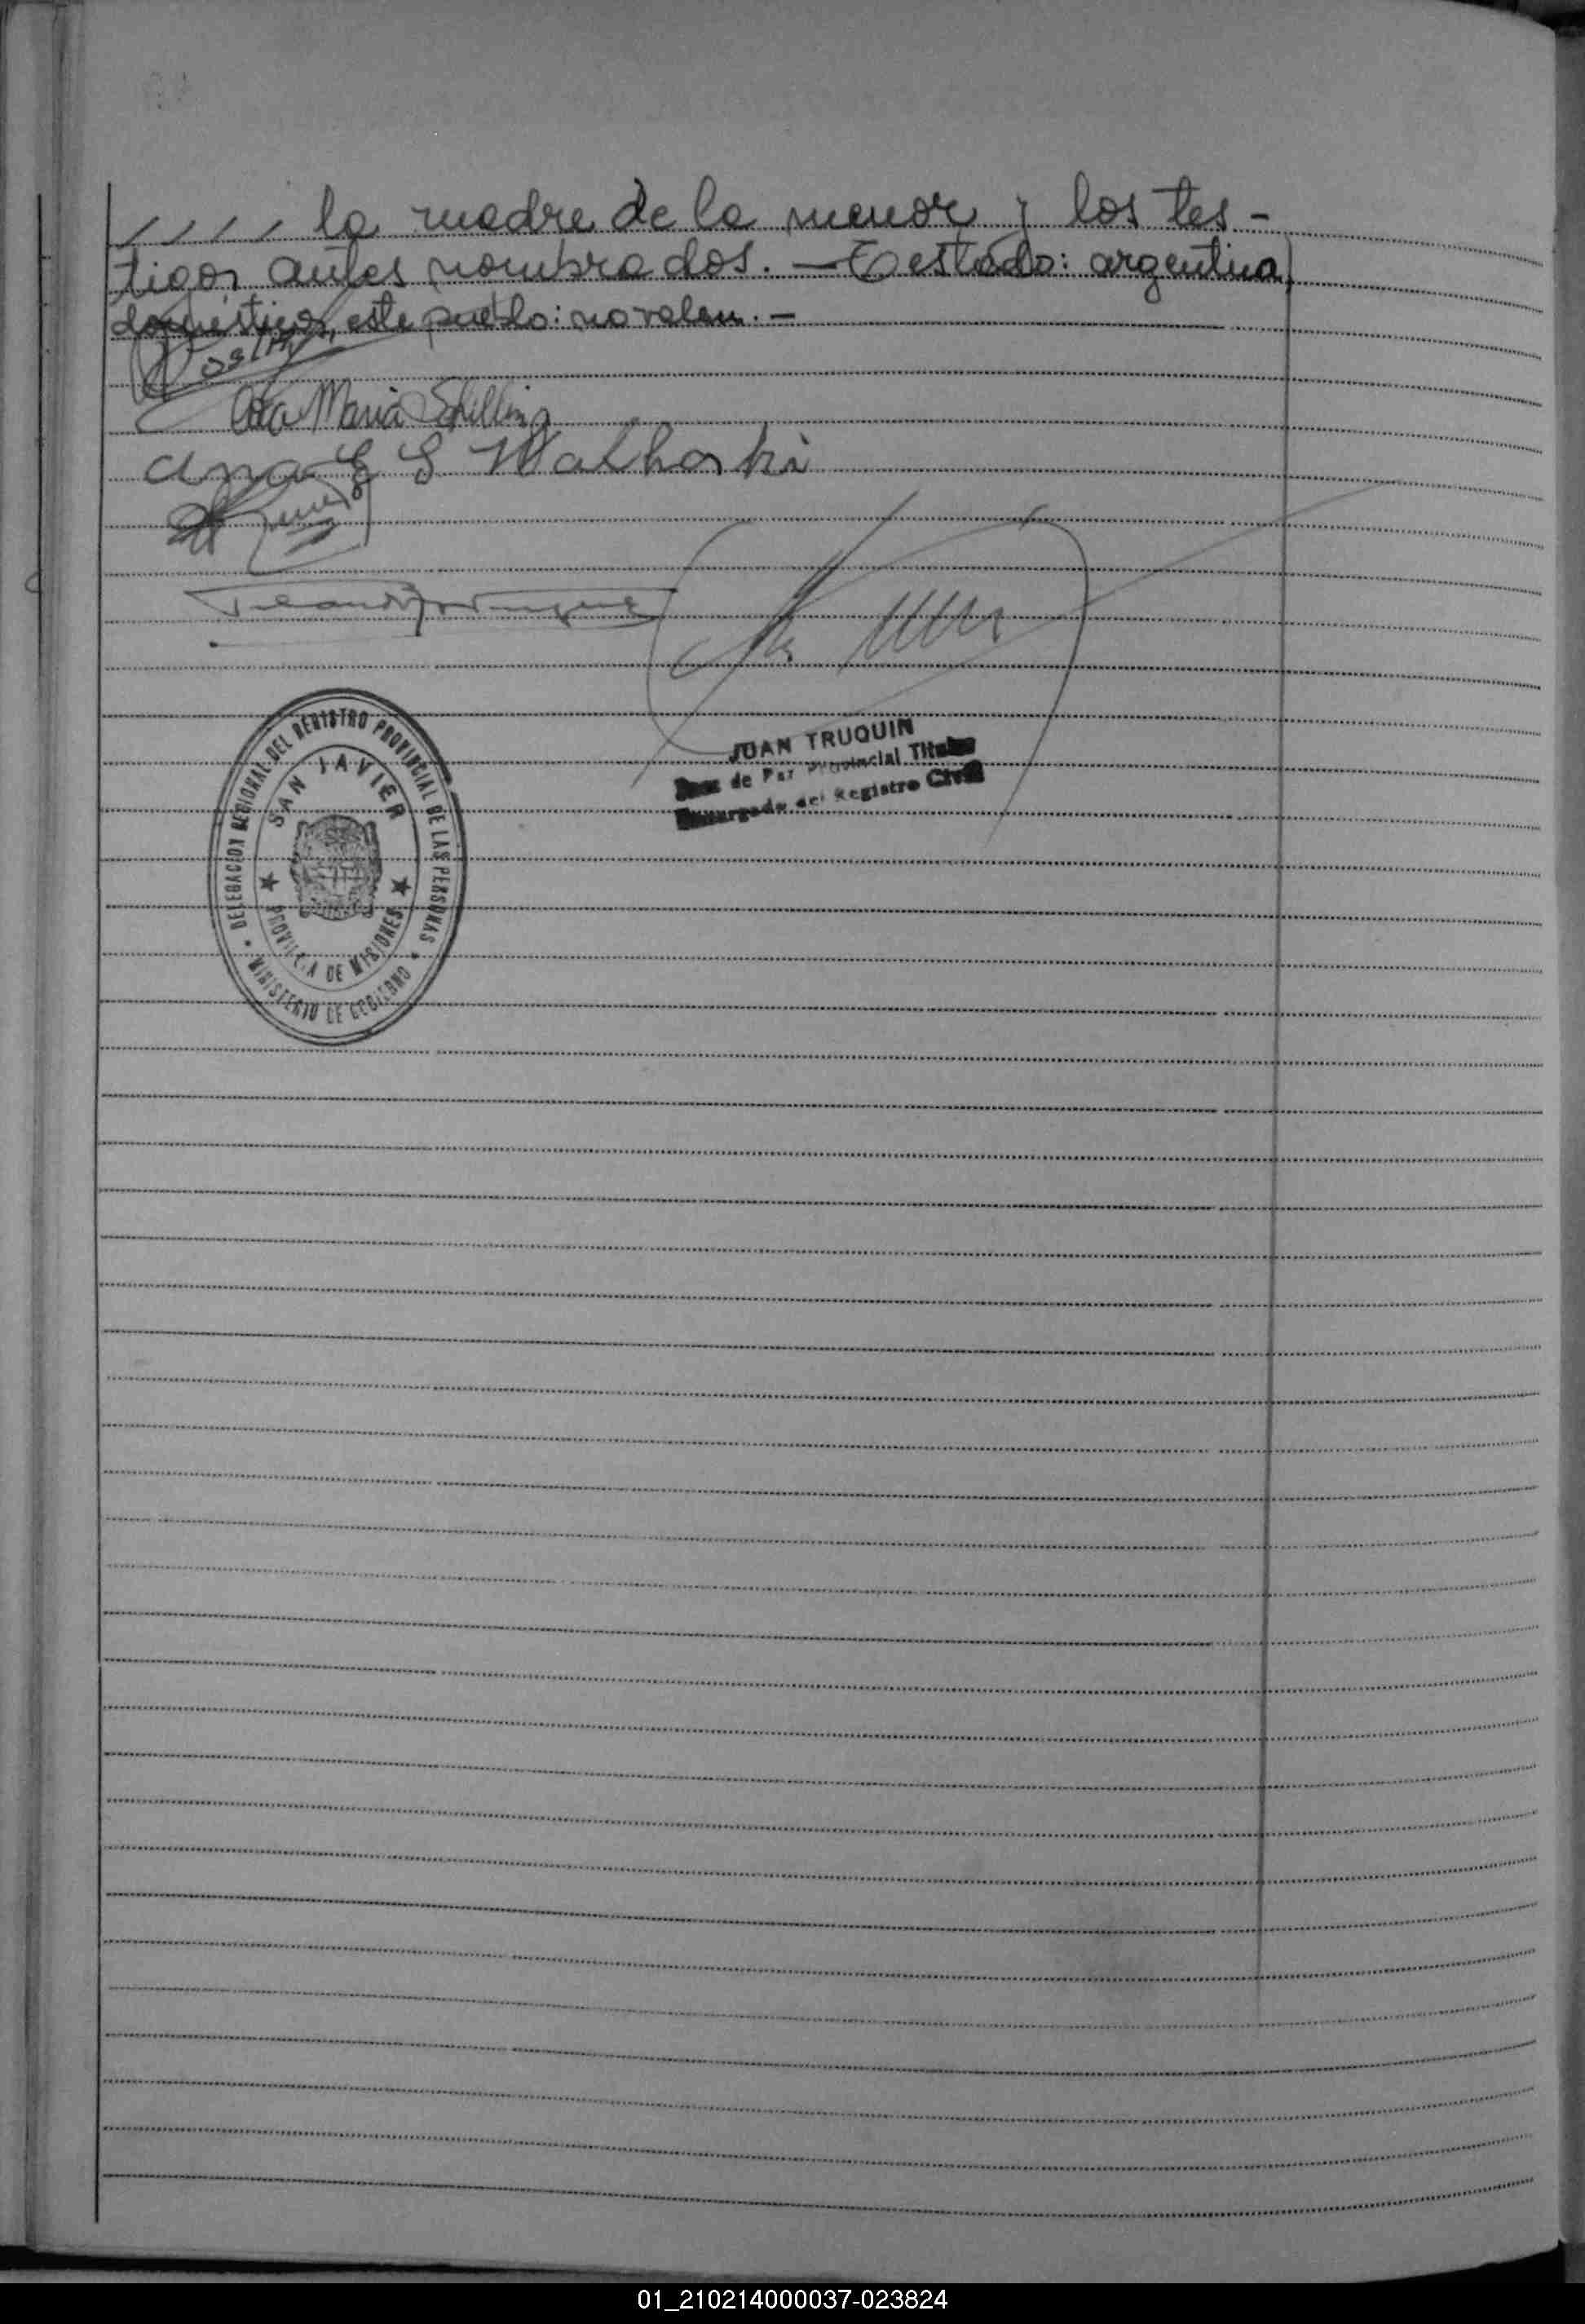 la madre de la menor y los tes-
tigos antes nombrados. — Testado: argentina,
domésticos, este pueblo: no valen. —
María Schilling
ana
JUAN TRUQUIN
de Paz Provincial Titular
Encargado del Registro Civil
DELEGACION REGIONAL DEL REGISTRO PROVINCIAL DE LAS PERSONAS
SAN JAVIER
PROVINCIA DE MISIONES
MINISTERIO DE GOBIERNO
01_210214000037-023824